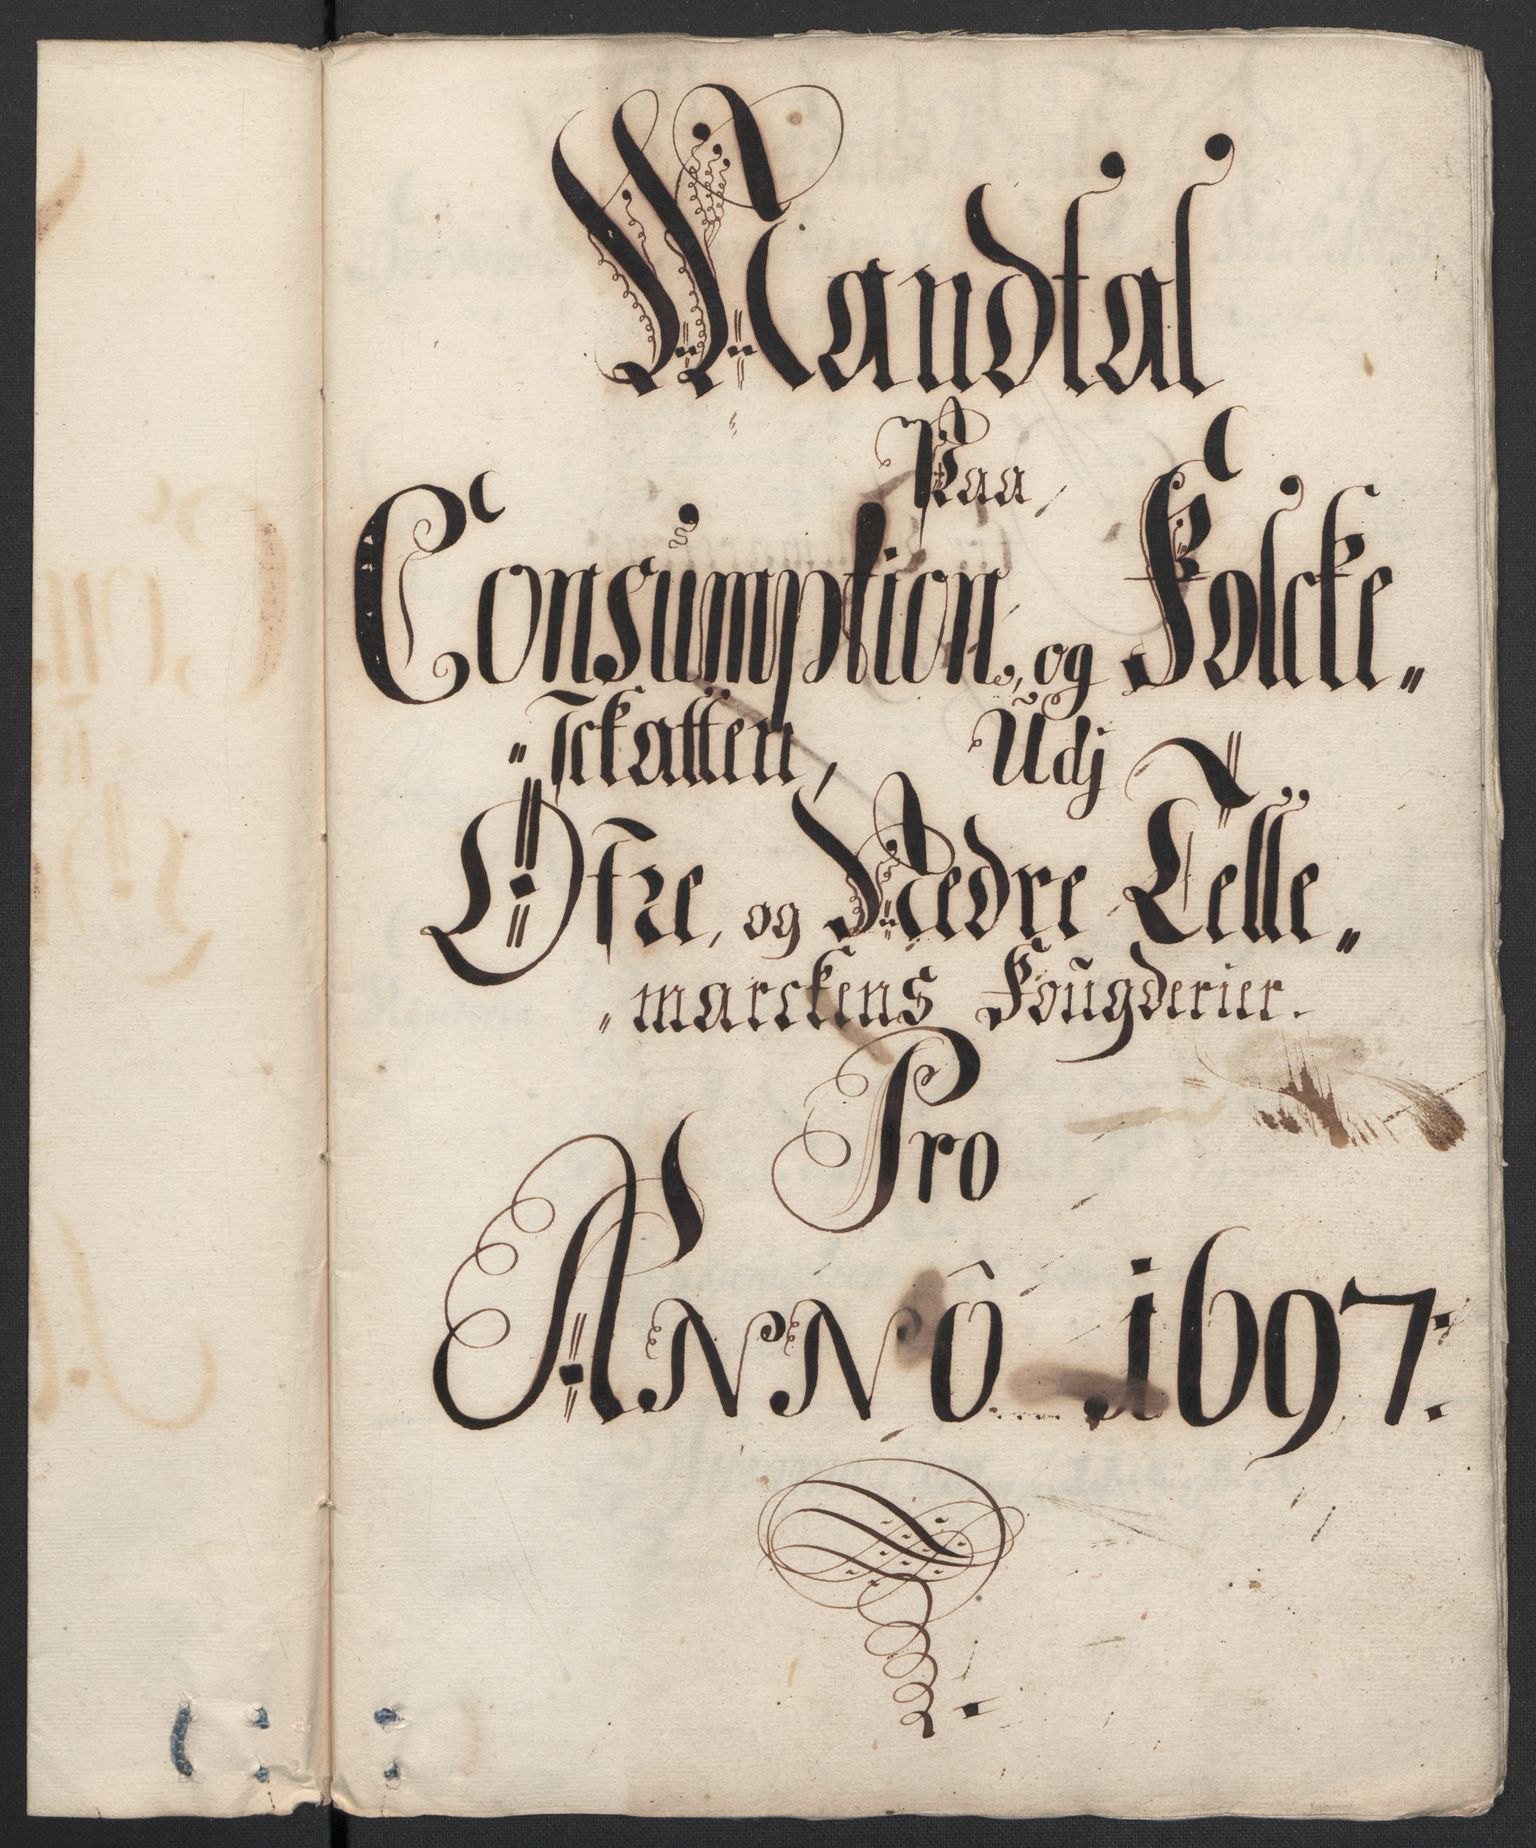 Mandtal
Paa,
Consumption, og Folcke„
„Schatten, Udj
Øfre, og Nedre Telle„
„marckens Fougderier.
Pro
Annô 1697: